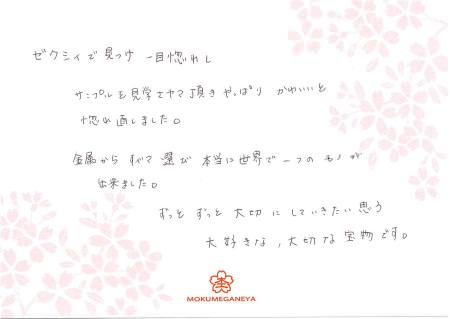 ゼクシィで見つけ 一目惚れし
サンプルを見学させて頂き やっぱり かわいいと
惚れ直しました。
金属から すべて 選び 本当に世界で 一つの モノ が
出来ました。
ずっと ずっと 大切に していきたい 思う
大好きな、大切な 宝物です。
MOKUMEGANEYA